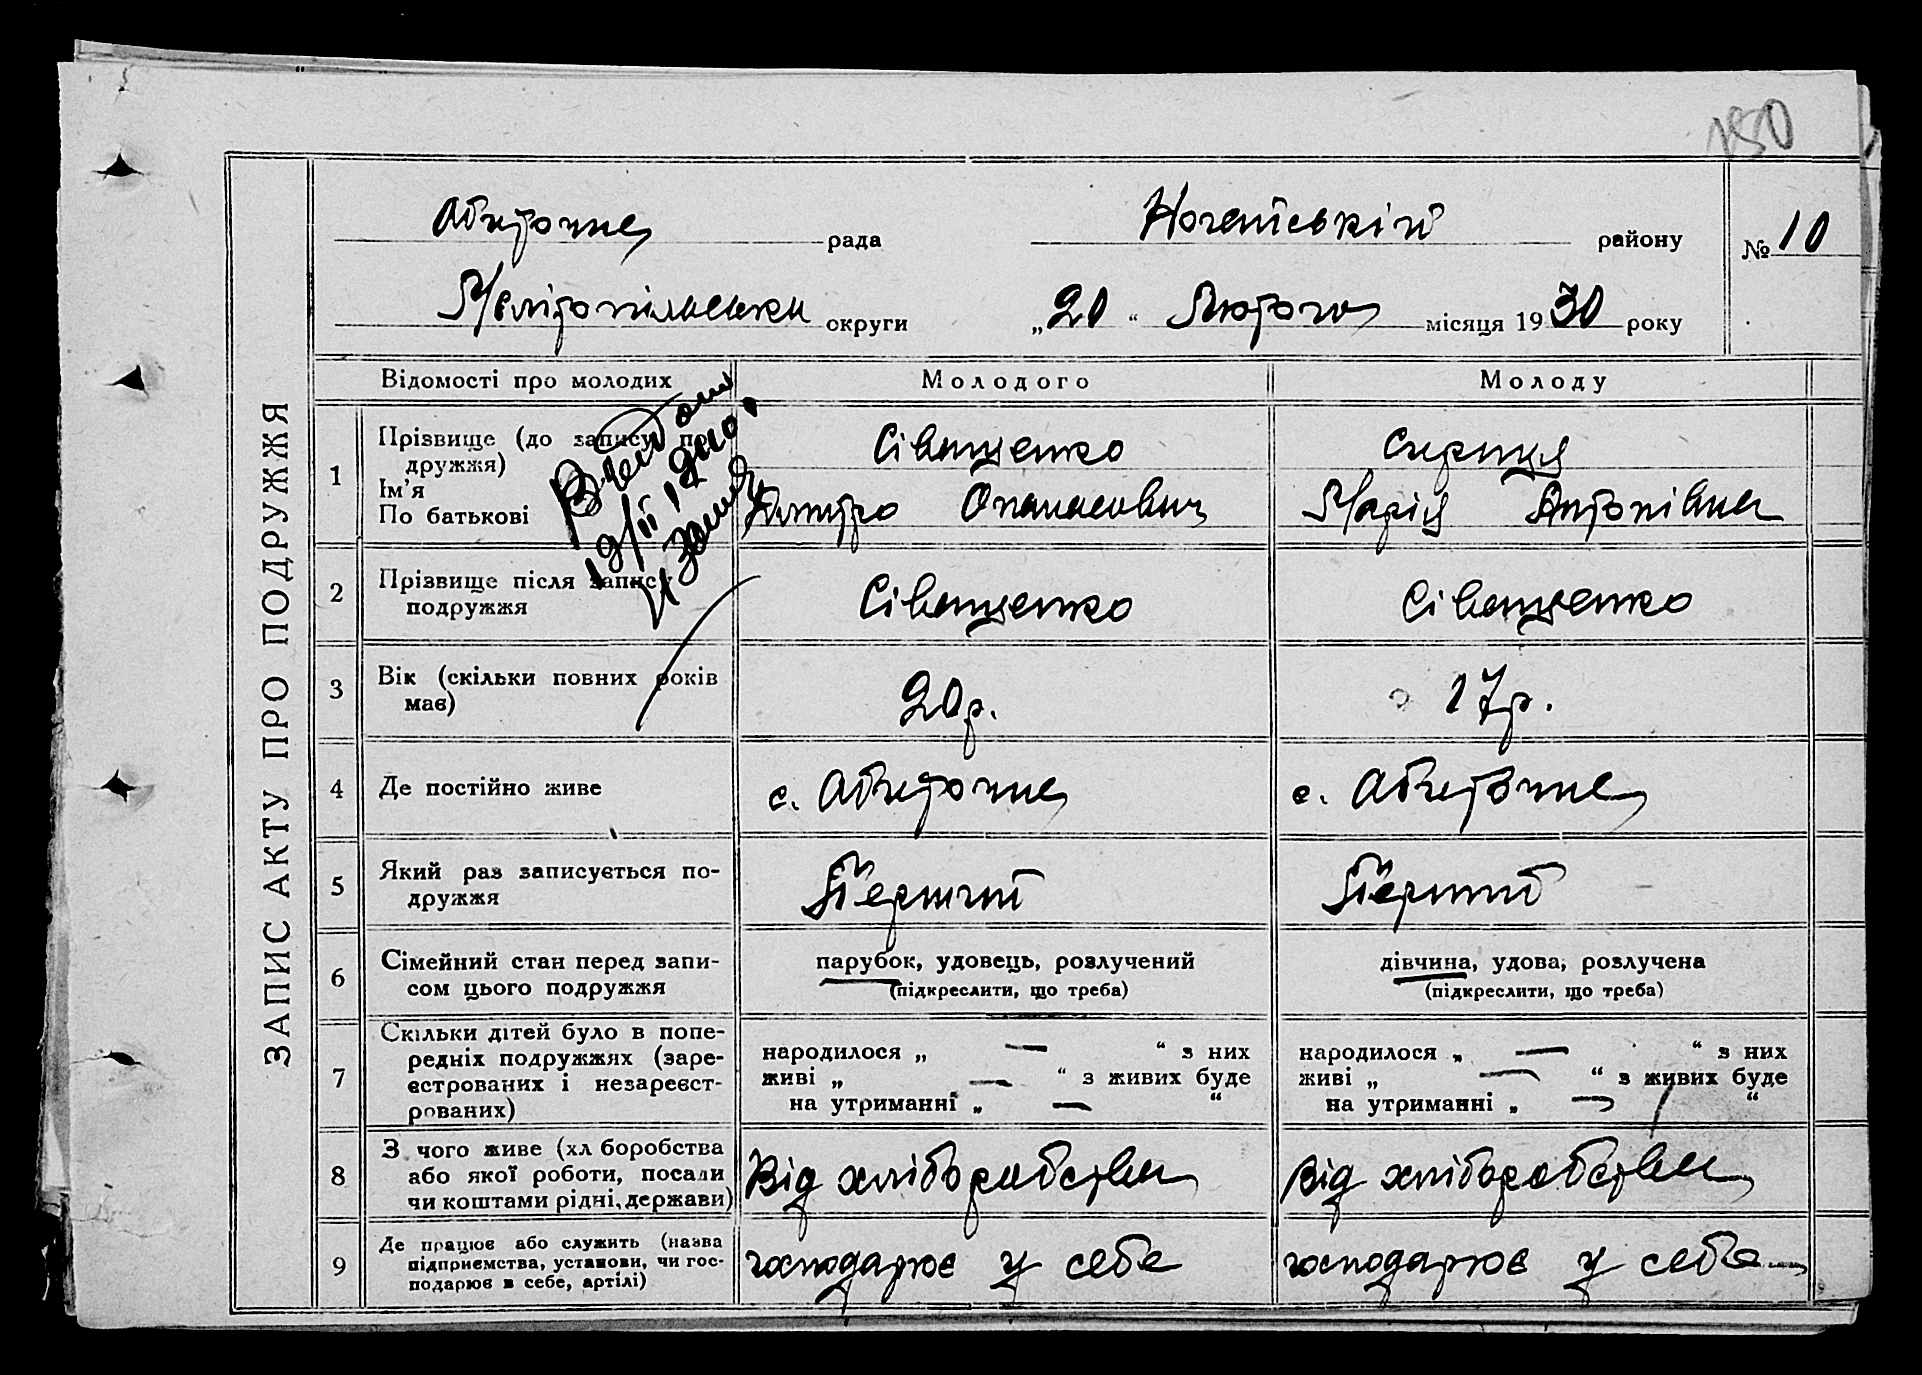 150
Абиточне рада Ногайський району № 10
Мелітопільська округи „20“ Лютого місяця 1930 року
ЗАПИС АКТУ ПРО ПОДРУЖЖЯ
Відомості про молодих Молодого Молоду
1 Прізвище (до запису подружжя) Сіващенко
дружжя)
Ім’я
По батькові Дмитро Опанасович Марія Антонівна
2 Прізвище після запису Сіващенко Сіващенко
подружжя
3 Вік (скільки повних років 20 р. 17 р.
має)
4 Де постійно живе с. Абиточне с. Абиточне
5 Який раз записується по- Перший Перший
дружжя
6 Сімейний стан перед запи- парубок, удовець, розлучений дівчина, удова, розлучена
сом цього подружжя (підкреслити, що треба) (підкреслити, що треба)
7 Скільки дітей було в попе-
редніх подружжях (заре- народилося „ — “ з них народилося „ — “ з них
єстрованих і незареєст- живі „ — “ з живих буде живі „ — “ з живих буде
рованих) на утриманні „ — “ на утриманні „ — “
8 З чого живе (хл боробства
або якої роботи, посади Від хліборобства Від хліборобства
чи коштами рідні, держави)
9 Де працює або служить (назва
підприємства, установи, чи гос- господарює у себе господарює у себе
подарює в себе, артілі)